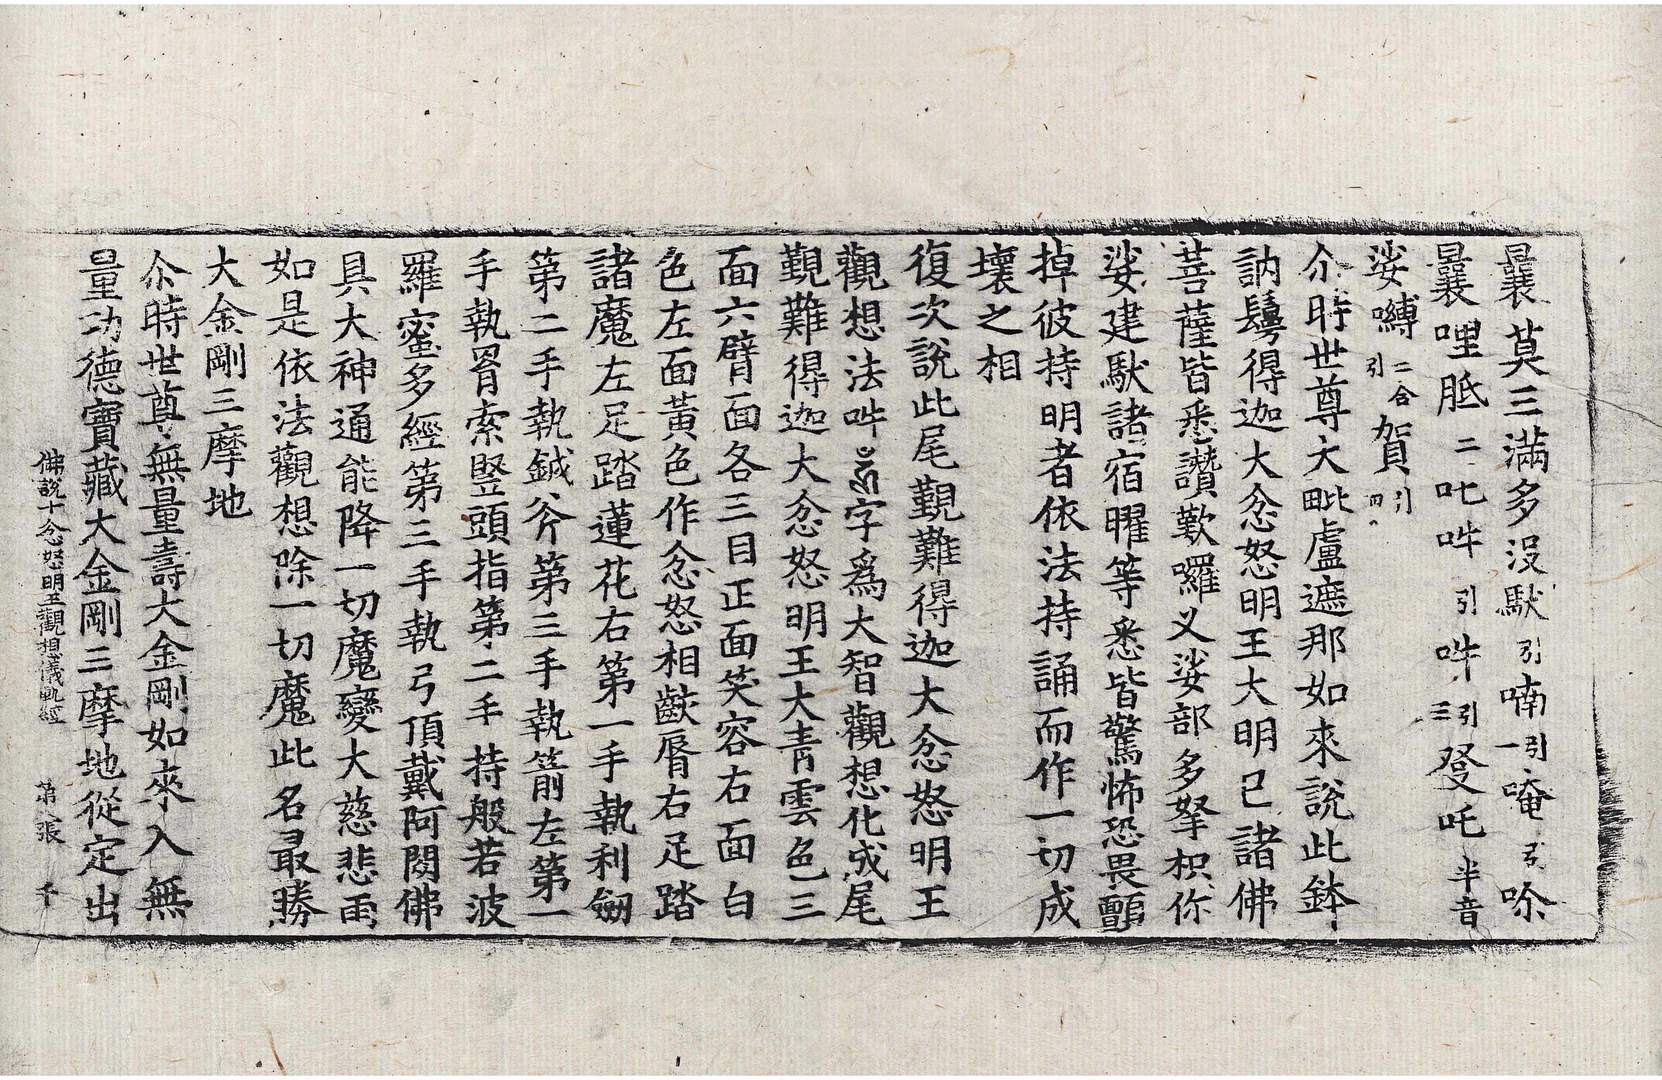 曩莫三滿多沒馱引喃引一唵引唥
曩哩胝二吒吽引吽引三發吒半音
娑嚩二合引賀引四
尒時世尊大毗盧遮那如來說此鉢
訥鬘得迦大忿怒明王大明已諸佛
菩薩皆悉讚歎囉义娑部多拏枳你
娑建馱諸宿曜等悉皆驚怖恐畏顫
掉彼持明者依法持誦而作一切成
壞之相
復次說此尾覲難得迦大忿怒明王
觀想法吽字爲大智觀想化成尾
覲難得迦大忿怒明王大青雲色三
面六臂面各三目正面笑容右面白
色左面黃色作忿怒相齩脣右足踏
諸魔左足踏蓮花右第一手執利劒
第二手執鉞斧第三手執箭左第一
手執罥索竪頭指第二手持般若波
羅蜜多經第三手執弓頂戴阿閦佛
具大神通能降一切魔變大慈悲雨
如是依法觀想除一切魔此名最勝
大金剛三摩地
尒時世尊無量壽大金剛如來入無
量功德寶藏大金剛三摩地從定出
佛說十忿怒明王觀想儀軌經 第 張 千